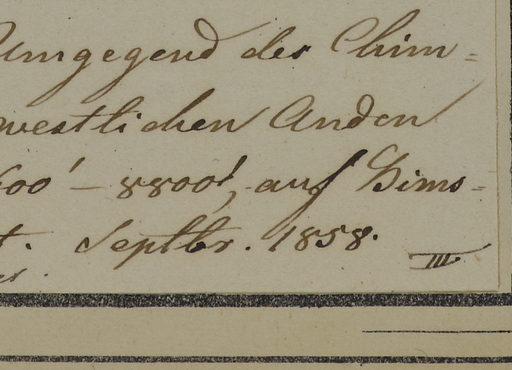 Umgegend des Chim=
westlichen Anden
600' – 8800', auf Bims=
t. Septbr. 1858.
III.